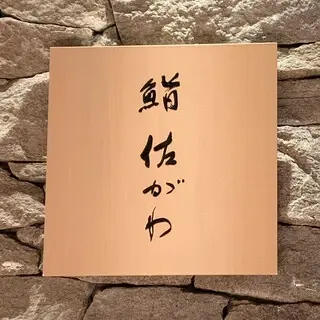 鮨 佐がわ